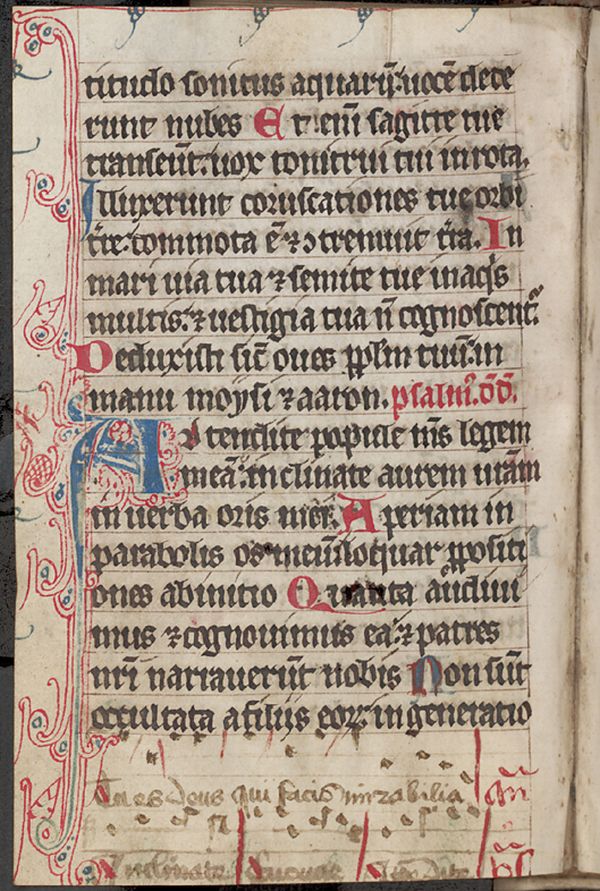 titudo sonitus aquarū. uocē dede
runt nubes Et eni̅ sagitte tue
transeūt: uox tonitrui tui in rota.
Illuxerunt coruscationes tue orbi
tr̅e: commota ē ⁊ ɔtremuit tr̅a. In
mari uia tua ⁊ semite tue in aq̅s
multis: ⁊ uestigia tua n̅ cognoscent᷑.
Deduxisti sic̅ oues pp̅lm tuū: in
manu moysi ⁊ aaron. psalm᷒. dd̅.
Attendite popule m̅s legem
meā: inclinate aurem ur̅am
in uerba oris mei. Aperiam in
parabolis os meū: loquar ꝓpositi
ones ab initio Quanta audiui
mus ⁊ cognouimus ea: ⁊ patres
nr̅i narrauerūt nobis Non sūt
occultata a filijs eoꝝ: in generatio
Tu es deus qui facis mirabilia
Inclinate